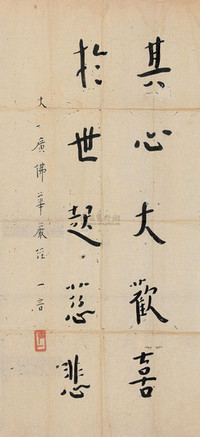 其心大歡喜
於世起慈悲
大方廣佛華嚴經 一音